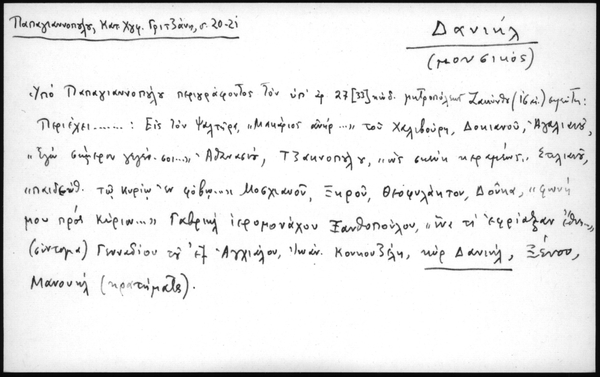 Παπαγιαννοπούλου, Κατ. Χγφ. Γριτζάνη, σ. 20-21
Δανιήλ
(μουσικός)
Ὑπὸ Παπαγιαννοπούλου περιγράφοντος τὸν ὑπ' ἀρ 27 [33] κώδ. μητροπόλεως Ζακύνθου
Περιέχει.......: Εἰς τὸν ψαλτῆρα, "Μακάριος ἀνήρ..." τοῦ Χαλιβούρη, Δοκιανοῦ, Ἀγαλιανοῦ,
"Ἐγὼ σήμερον γεγέν. σοι..." Ἀθανασίου, Τζακνοπούλου, "ὡς σκεύη κεραμέως" Στηλιανοῦ,
"παιδεύθ. τῷ κυρίῳ ἐν φόβῳ..." Μοσχιανοῦ, Ξηροῦ, Θεοφυλάκτου, Δούκα, "φωνή
μου πρὸς Κύριον..." Γαβριὴλ ἱερομονάχου Ξανθοπούλου, "ἵνα τί ἐφρύαξαν ἔθνη..."
(σύντομα) Γενναδίου τοῦ ἐξ Ἀγχιάλου, Ἰωάν. Κουκουζέλη, κὺρ Δανιήλ, Ξένου,
Μανουὴλ (κρατήματα).